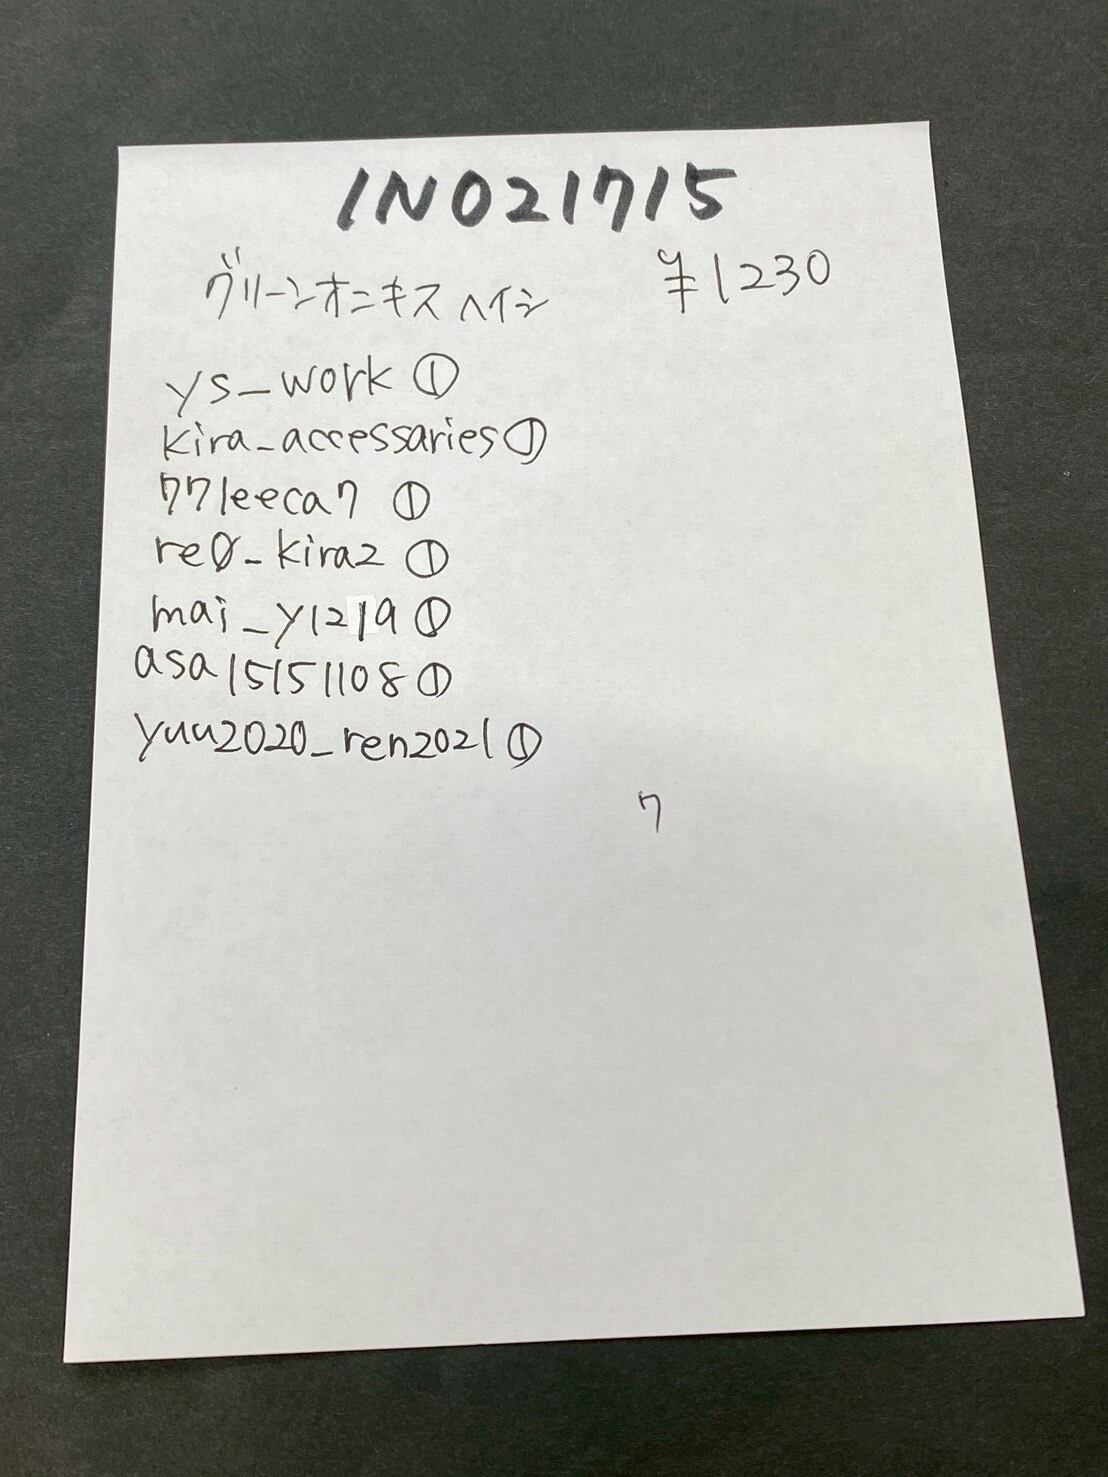 INO21715
グリーンオニキス ヘイシ ¥1230
ys_work ①
kira_accessaries①
77leeca7 ①
re0_kira2 ①
mai_y1219 ①
asa15151108①
yuu2020_ren2021①
7